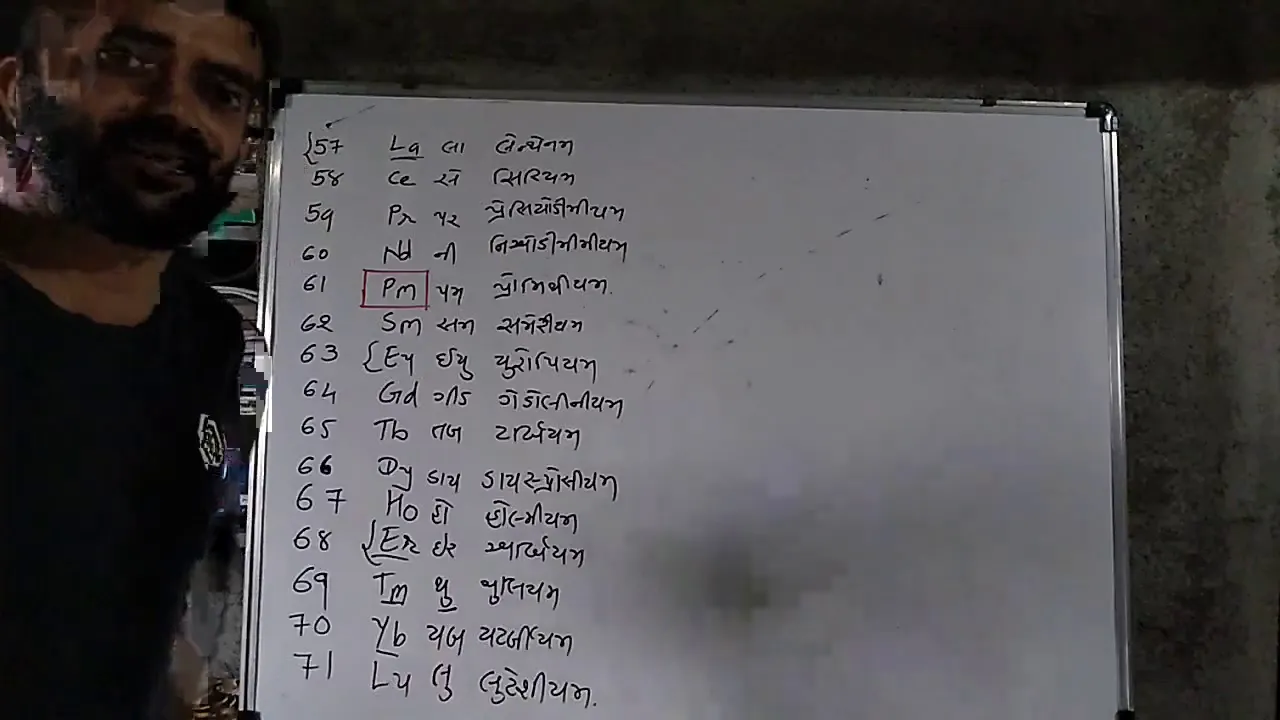 57 La લા લેન્થેનમ
58 Ce સે સિરિયમ
59 Pr પર પ્રેસિયોડીમીયમ
60 Nd ની નિઓડીમીમીયમ
61 Pm પમ પ્રોમિથીયમ.
62 Sm સમ સમેરીયમ
63 Eu ઈયુ યુરોપિયમ
64 Gd ગીડ ગેડોલીનીયમ
65 Tb તબ ટાર્બિયમ
66 Dy ડાય ડાયસ્પ્રોસીયમ
67 Ho હો હોલ્મીયમ
68 Er ઈર આર્બિયમ
69 Tm થુ થુલિયમ
70 Yb યબ યટર્બીયમ
71 Lu લુ લુટેશીયમ.